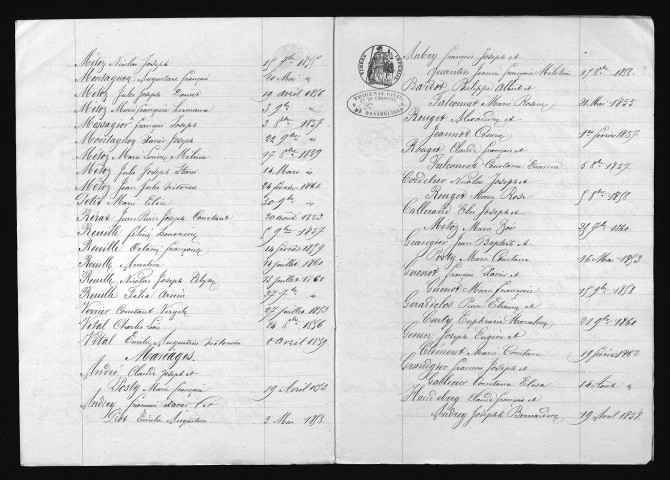 Métoz Nicolas Joseph 15 7bre 1855
Montagnon Augustave François 20 Mai "
Métoz Jules Joseph Donat 19 avril 1856
Métoz Marie François 3 9bre "
Massagier François Joseph 3 8bre 1857
Montagnon Xavier Joseph 22 9bre "
Métoz Marie Louise Melina 17 8bre 1859
Métoz Jules Joseph 14 Mars "
Métoz Jean Jules Victorien 24 février 1861
Petit Marie Elise 30 9bre "
Rérat Jean Pierre Joseph Constant 20 août 1853
Reuille 5 9bre 1857
Reuille Octavie Françoise 14 février 1859
Reuille Amelie juillet 1860
Reuille Nicolas Joseph 13 juillet 1861
Reuille 27 7bre "
Verrier Constant Virgile 27 juillet 1853
Vital Charles Léon 24 8bre 1856
Vital Emile Augustin Victorien 8 avril 1859
Mariages.
André Claude Joseph et
Posty Marie Françoise 19 Avril 1853
Andrey François Xavier et
Diot Emilie Augustine 2 Mai 1858.
TIMBRE IMPERIAL
TRIBUNAL CIVIL
DE MONTBELIARD
Aubry François Joseph et
Quentin Jeanne Françoise 15 8bre 1858.
Bardot Philippe Albert et
Falconnet Marie Rosine 21 Mai 1853
Rouget Alexandre et
Jeannot 1er février 1857
Rouget Claude François et
Falconnet Constance 6 8bre 1857
Cordelier Nicolas Joseph et
Rouget Marie Rose 5 8bre 1858.
Joseph et
Métoz Marie Zoé 25 7bre 1860
Jean Baptiste et
Posty Marie Constance 16 Mai 1853
Guenot François Xavier et
Guenot Marie Françoise 15 9bre 1858
Girardclos Pierre Etienne et
Curty Euphrasie 21 9bre 1860
Genin Joseph Eugène et
Clémence Marie Constance 19 février 1862
Grandgier François Joseph et
Constance Elisa 14 août "
Claude François et
Andrey Josephte Bernardine 19 Avril 1858.